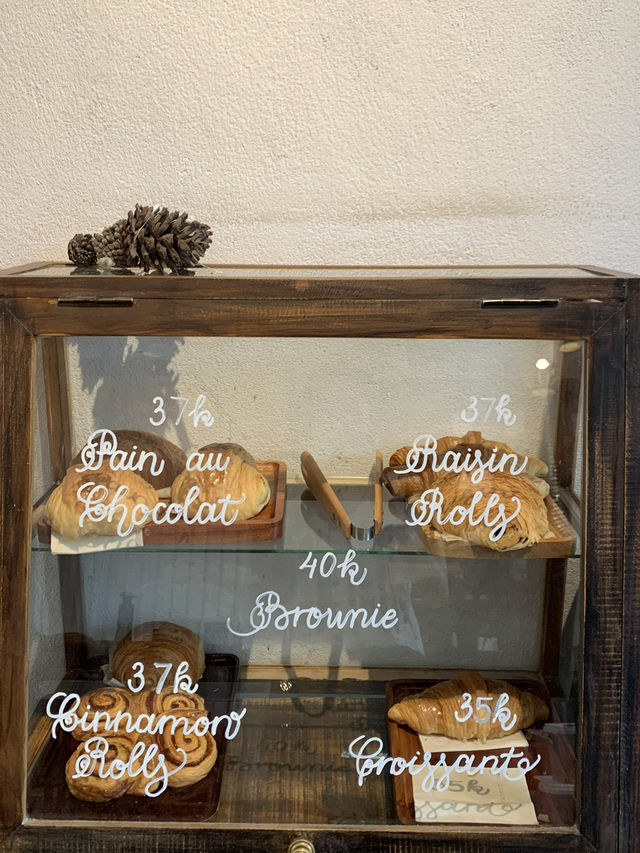 37k
Pain au
Chocolat
37k
Raisin
Rolls
40k
Brownie
37k
Cinnamon
Rolls
35k
Croissante